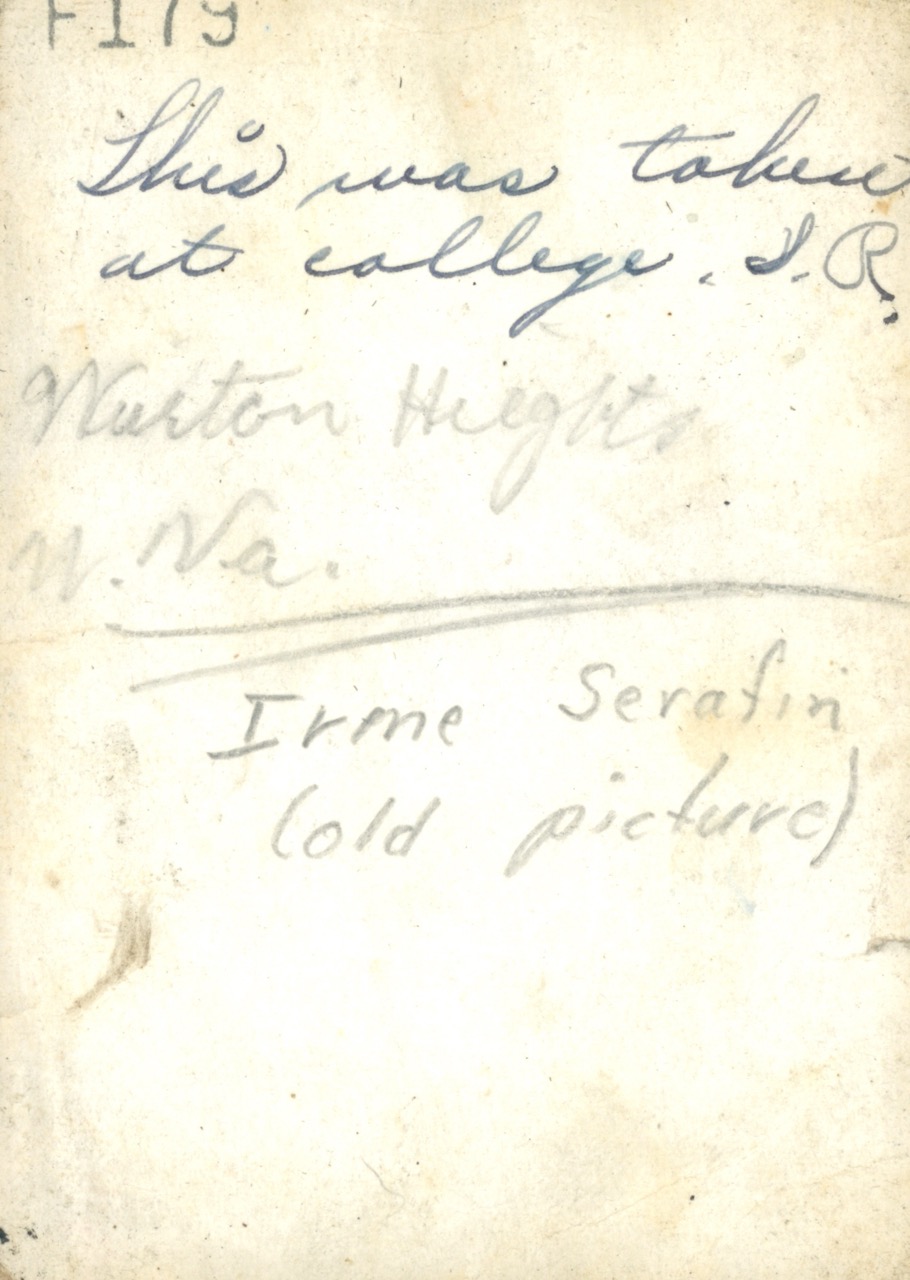 F179
This was taken
at college. S.R.
Heights
W. Va.
Irme Serafin
(old picture)